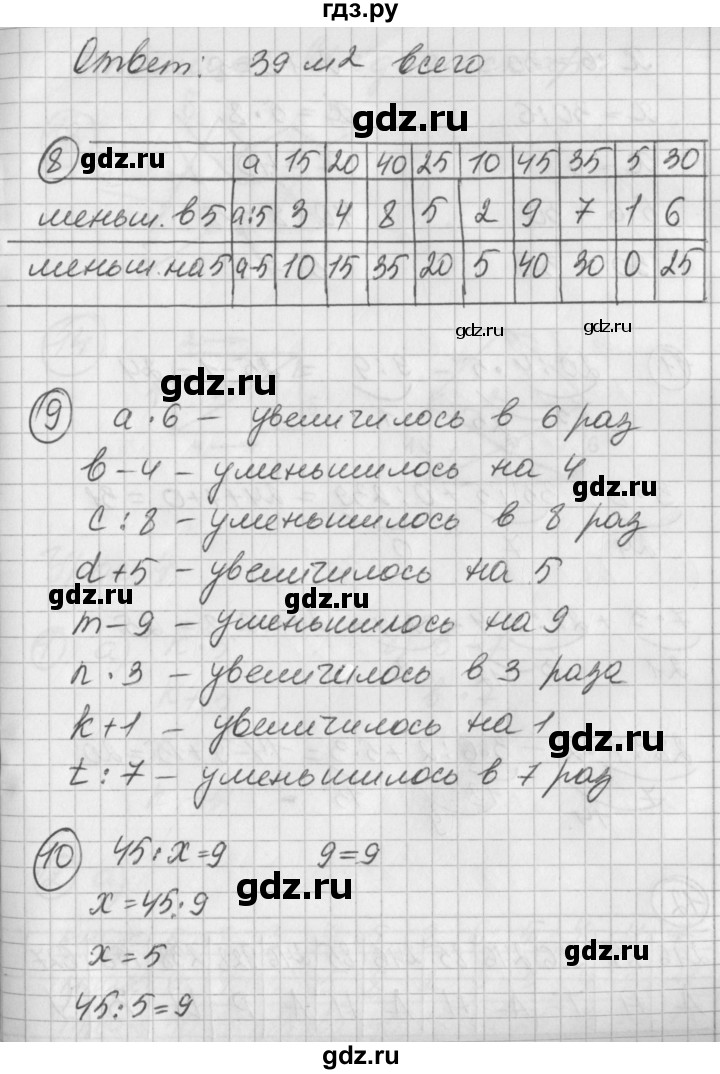 гдз.ру
Ответ: 39 м2 всего
gdz.ru
8 gdz.ru а 15 20 40 25 10 45 35 5 30
меньш. в 5 а:5 3 4 8 5 2 9 7 1 6
меньш. на 5 а-5 10 15 35 20 5 40 30 0 25
gdz.ru gdz.ru
gdz.ru
9 a · 6 – увеличилось в 6 раз
в – 4 – уменьшилось на 4
gdz.ru
c : 8 – уменьшилось в 8 раз
d + 5 – увеличилось на 5
gdz.ru gdz.ru
m – 9 – уменьшилось на 9
n · 3 – увеличилось в 3 раза
k + 1 – увеличилось на 1
gdz.ru
t : 7 – уменьшилось в 7 раз
10 45 : x = 9 9 = 9
gdz.ru
x = 45 : 9
x = 5
gdz.ru
45 : 5 = 9
gdz.ru